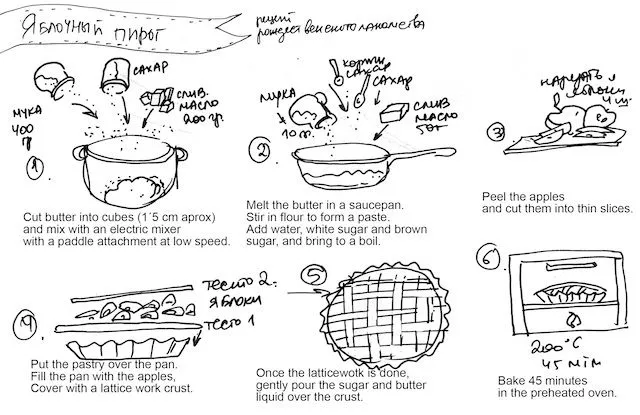 Яблочный пирог
рецепт
рождественского лакомства
мука
400
г
сахар
слив.
масло
200 гр.
1.
Cut butter into cubes (1´5 cm aprox)
and mix with an electric mixer
with a paddle attachment at low speed.
мука
10 г.
сахар
сахар
слив.
масло
2.
Melt the butter in a saucepan.
Stir in flour to form a paste.
Add water, white sugar and brown
sugar, and bring to a boil.
нарезать
яблоки
4 шт.
3
Peel the apples
and cut them into thin slices.
4
тесто 2.
яблоки
тесто 1
Put the pastry over the pan.
Fill the pan with the apples,
Cover with a lattice work crust.
5
Once the latticewotk is done,
gently pour the sugar and butter
liquid over the crust.
6.
200°C
45 мін
Bake 45 minutes
in the preheated oven.